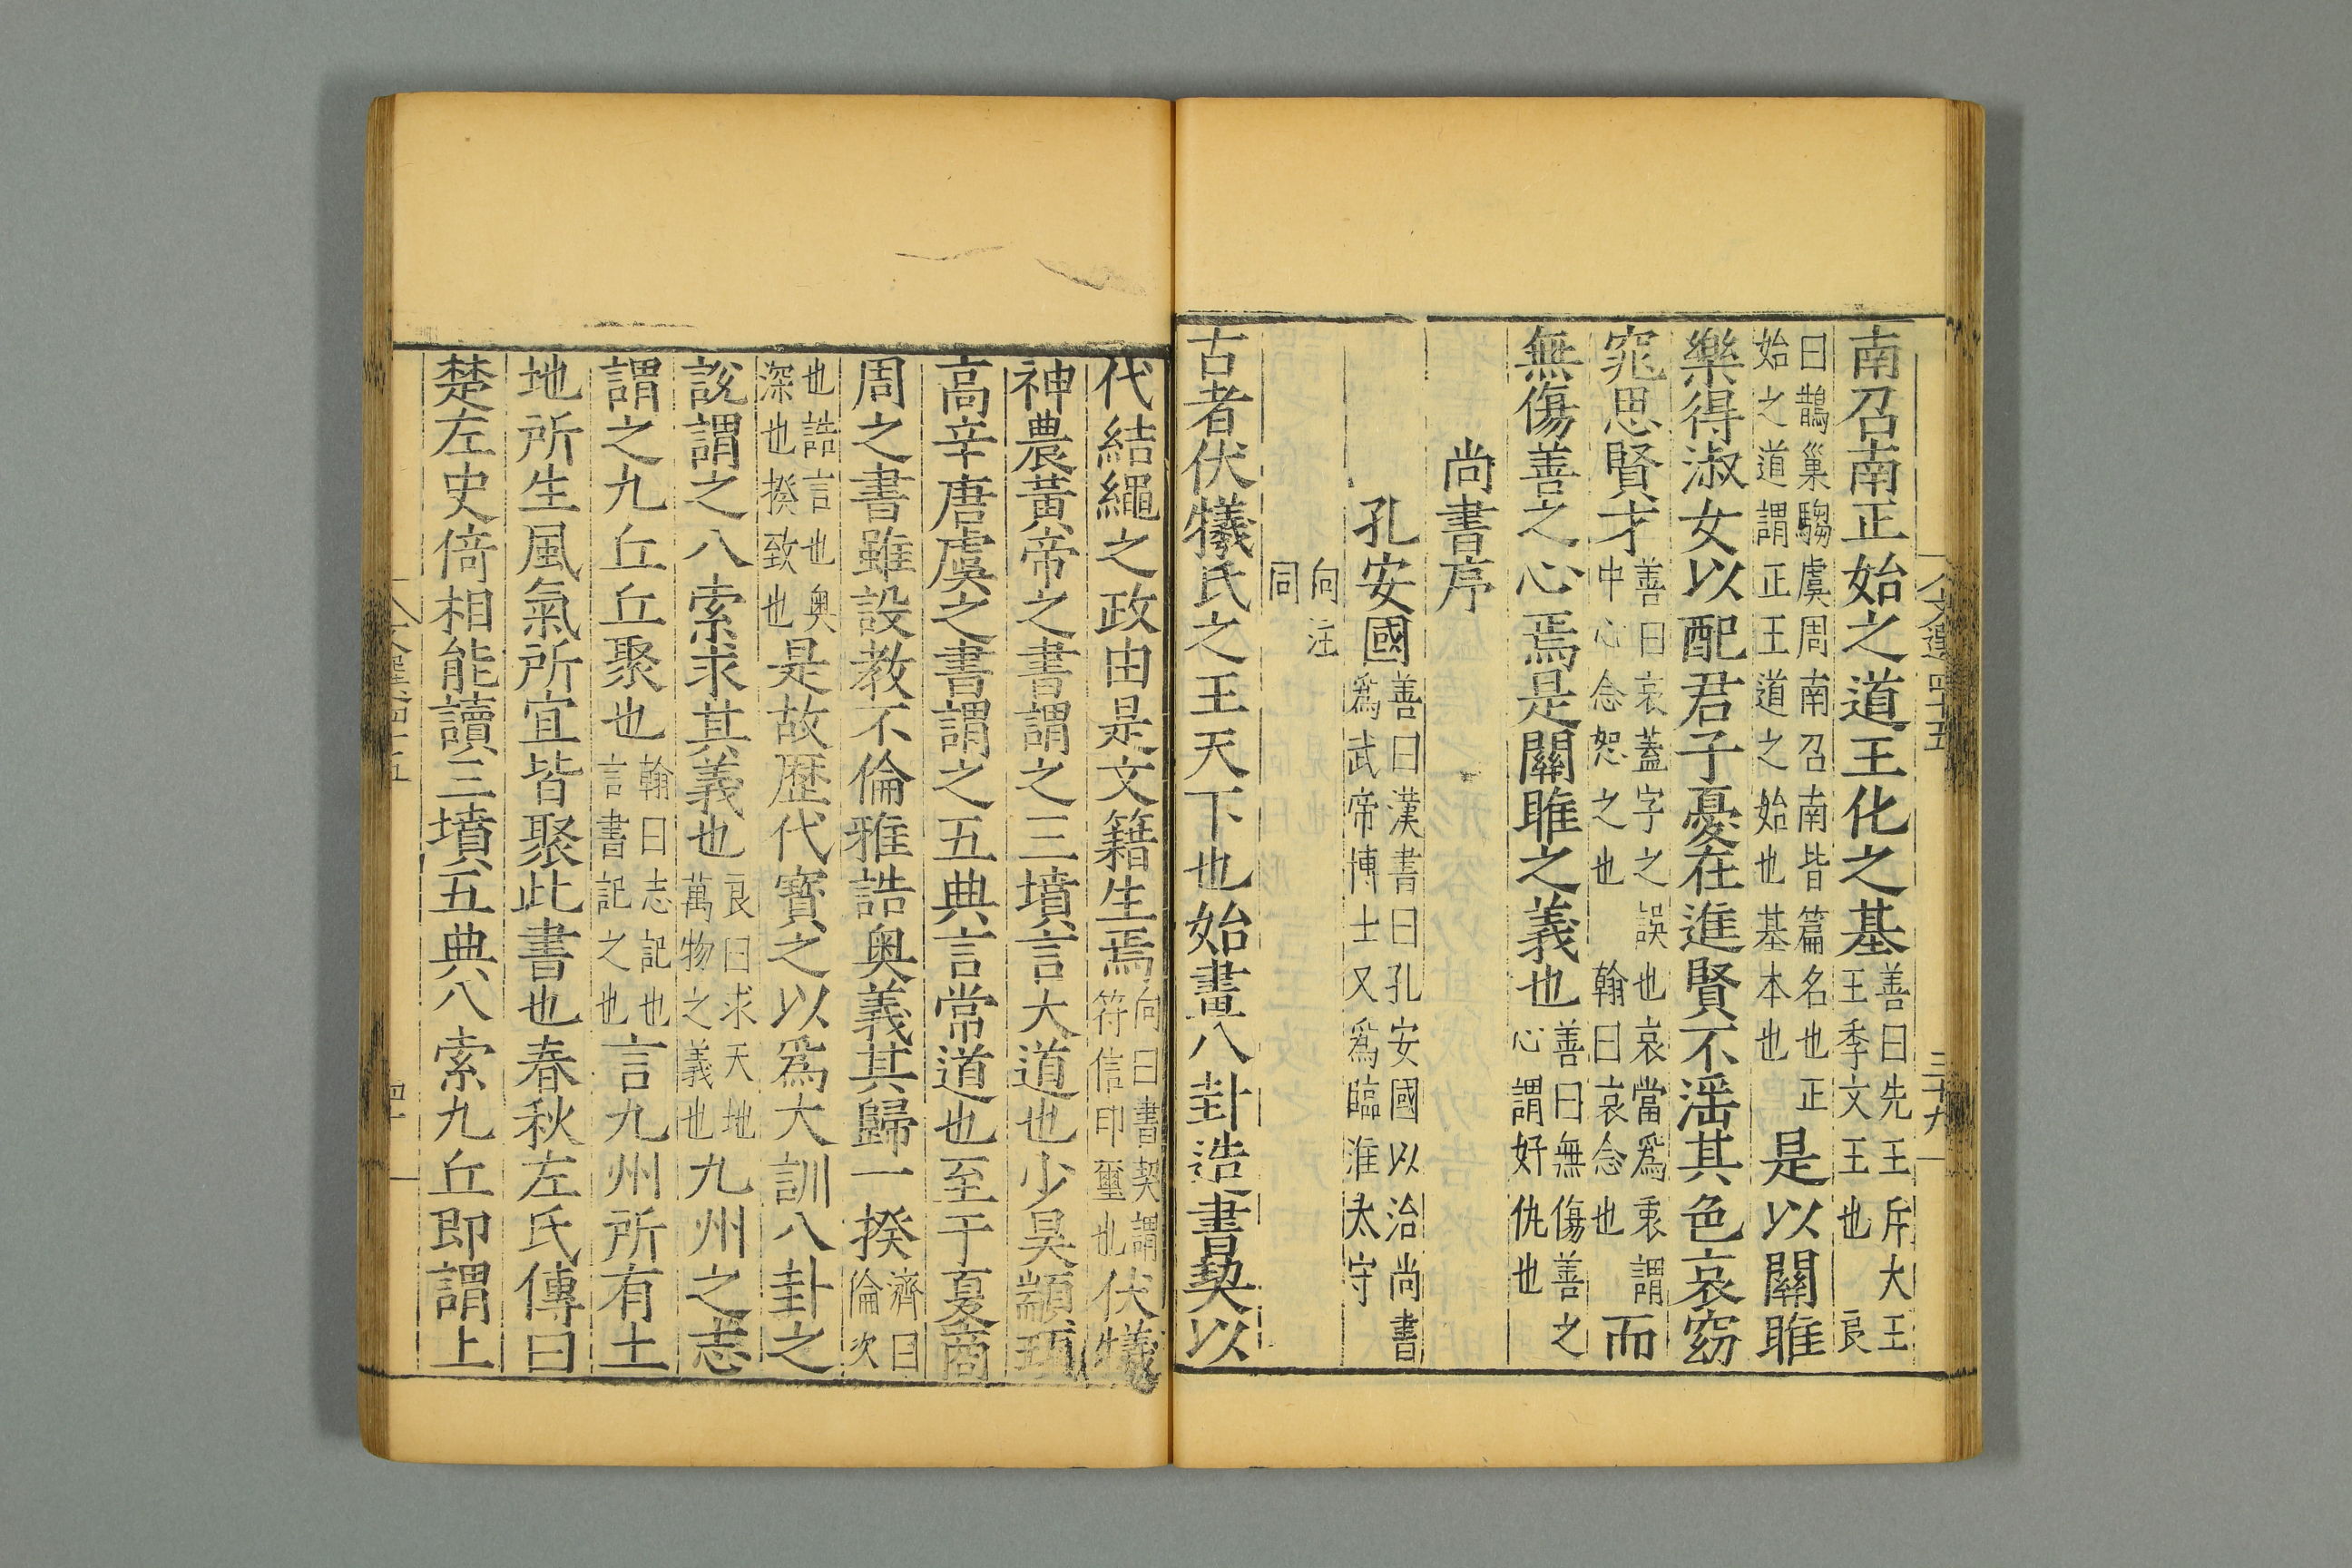 文選四十五
三十九
南召南正始之道王化之基善曰先王斥大王王季文王也良
曰鵲巢騶虞周南召南皆篇名也正始之道謂正王道之始也基本也是以關雎
樂得淑女以配君子憂在進賢不滛其色哀窈
窕思賢才善曰哀蓋字之誤也哀當爲衷謂中心念恕之也翰曰哀念也而
無傷善之心焉是關雎之義也善曰無傷善之心謂好仇也
尚書序
孔安國善曰漢書曰孔安國以治尚書爲武帝博士又爲臨淮太守
向注同
古者伏犧氏之王天下也始畫八卦造書契以
代結繩之政由是文籍生焉向曰書契謂符信印璽也伏犧
神農黃帝之書謂之三墳言大道也少昊顓頊
高辛唐虞之書謂之五典言常道也至于夏商
周之書雖設教不倫雅誥奥義其歸一揆濟曰倫次
也誥言也奥深也揆致也是故歷代寳之以爲大訓八卦之
說謂之八索求其義也良曰求天地萬物之義也九州之志
謂之九丘丘聚也翰曰志記也言書記之也言九州所有土
地所生風氣所宜皆聚此書也春秋左氏傳曰
楚左史倚相能讀三墳五典八索九丘即謂上